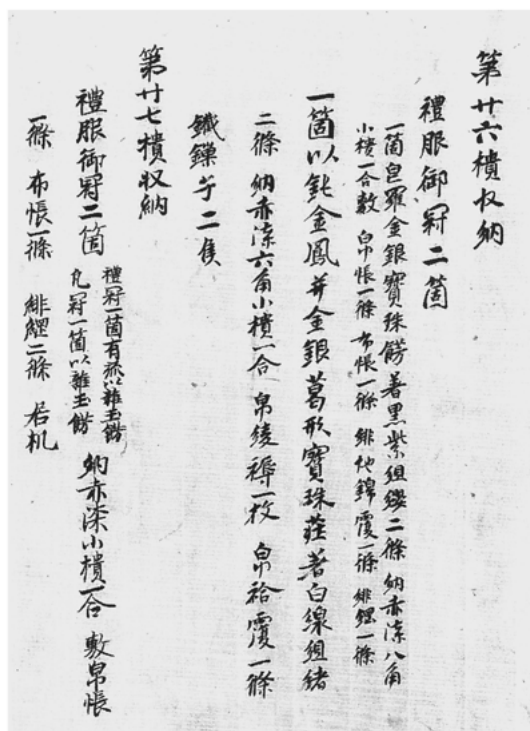 第廿六樻収納
禮服御冠二箇
一箇皂羅金銀寳珠餝著黒紫組纓二條 納赤漆八角
小樻一合敷 帛帳一條 布帳一條 緋地錦覆一條 緋綱一條
一箇以純金鳳并金銀葛形寳珠荘著白線組緒
二條 納赤漆六角小樻一合 帛綾褥一枚 帛袷覆一條
鐵鏁子二隻
第廿七樻収納
禮服御冠二箇
禮冠一箇有 以雜玉餝
凡冠一箇以雜玉餝
納赤漆小樻一合 敷帛帳
一條 布帳一條 緋綱二條 居机